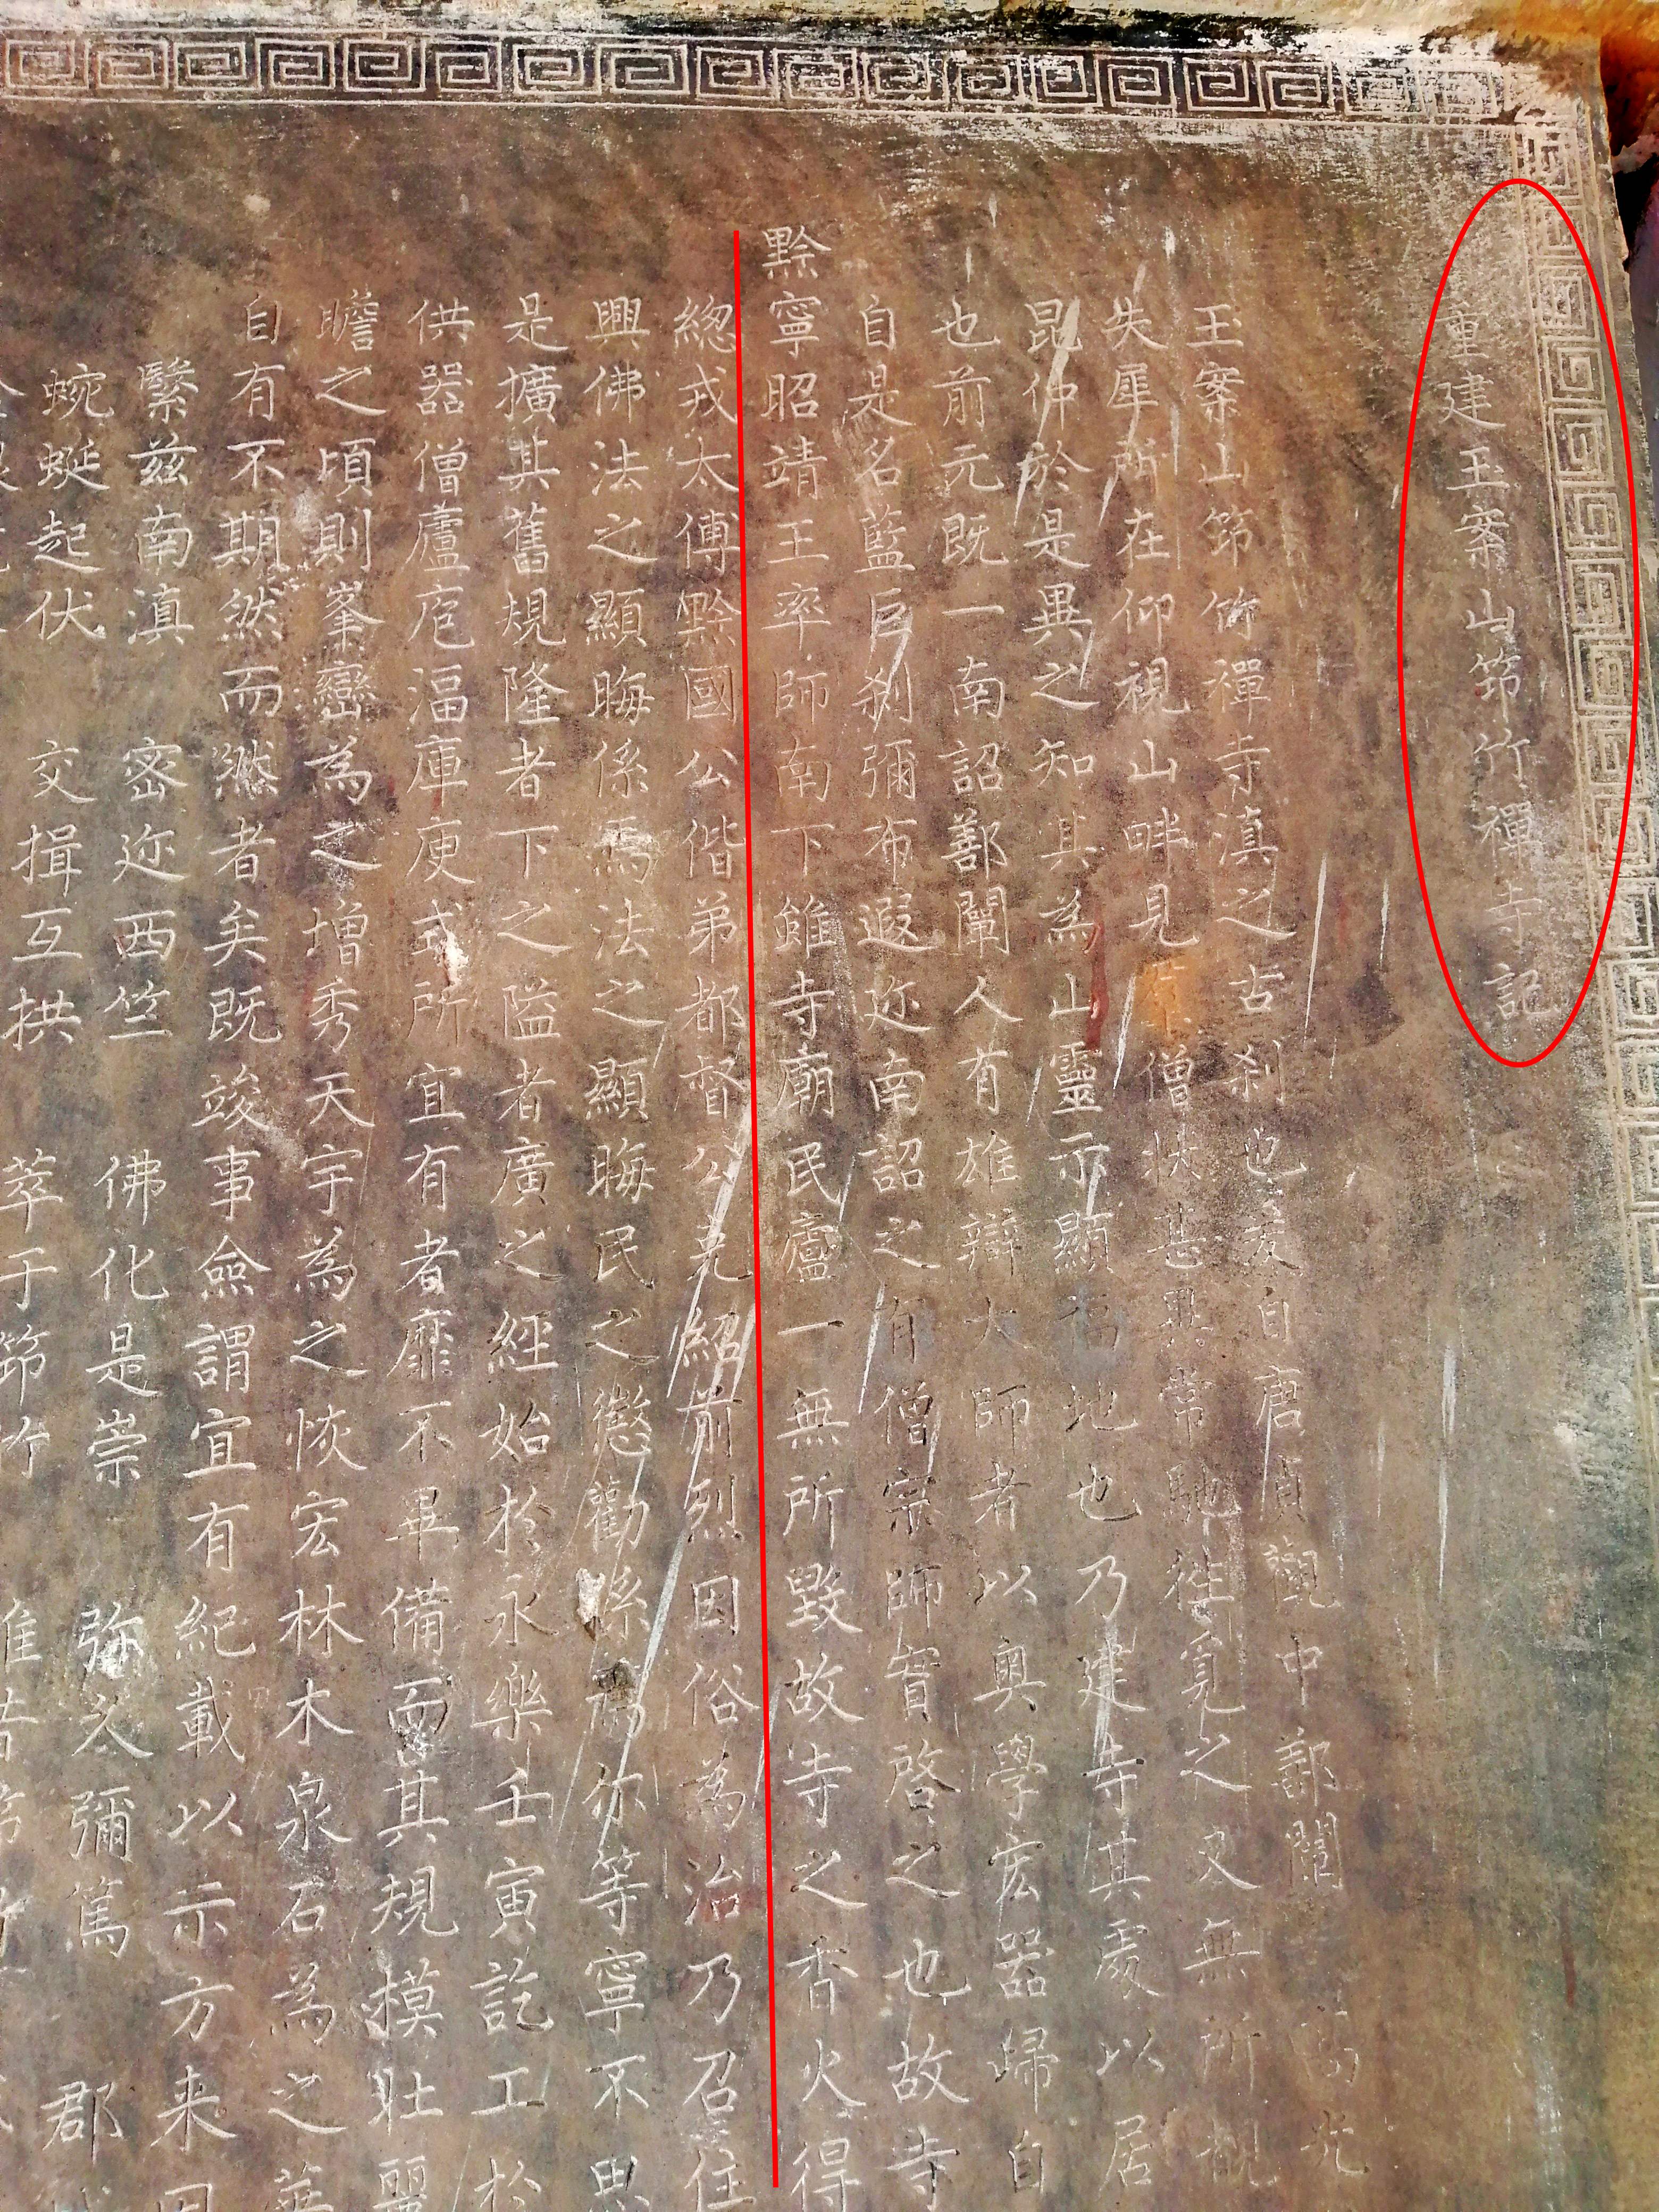 重建玉案山筇竹禪寺記
玉案山筇竹禪寺滇之古刹也爰自唐貞觀中鄯闡高光
失犀所在仰視山畔見僧狀甚異常馳往覓之又無所覩
昆仲於是異之知其為山靈示顯福地也乃建寺其處以居
也前元既一南詔鄯闡人有雄辯大師者以奧學宏器歸自
自是名藍巨刹彌布遐迩南詔之有僧宗師實啓之也故寺
黔寧昭靖王率師南下雖寺廟民廬一無所毀故寺之香火得
總戎太傅黔國公偕弟都督公克紹前烈因俗為治乃召住
興佛法之顯晦係焉法之顯晦民之懲勸係焉你等寧不思
是擴其舊規隆者下之隘者廣之經始於永樂壬寅訖工於
供器僧廬庖湢庫庾式所宜有者靡不畢備而其規模壯麗
瞻之頃則峯巒為之增秀天宇為之恢宏林木泉石為之華
自有不期然而然者矣既竣事僉謂宜有紀載以示方来因
繄兹南滇 密迩西竺 佛化是崇 弥久彌篤
蜿蜒起伏 交揖互拱 萃于筇竹 郡